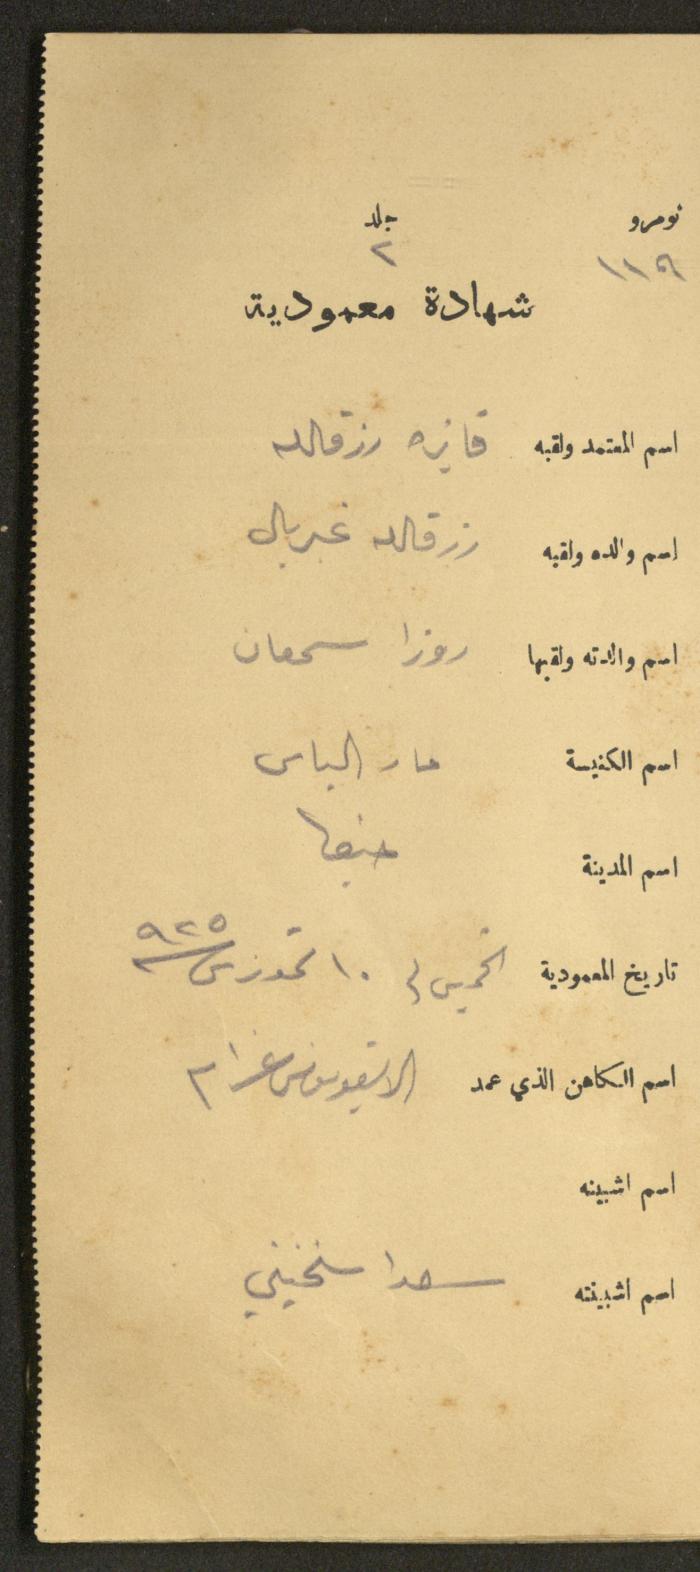 نومرو جلد
١١٩ ٢
شهادة معمودية
اسم المعتمد ولقبه فايزه رزقالله
اسم والده ولقبه رزقالله غبريال
اسم والدته ولقبها روزا سمعان
اسم الكنيسة مار الياس
اسم المدينة حيفا
تاريخ المعمودية الخميس في ١٠ تموز س ٩٢٥
اسم الكاهن الذي عمد
اسم اشبينه
اسم اشبينته سعدا سخنيني